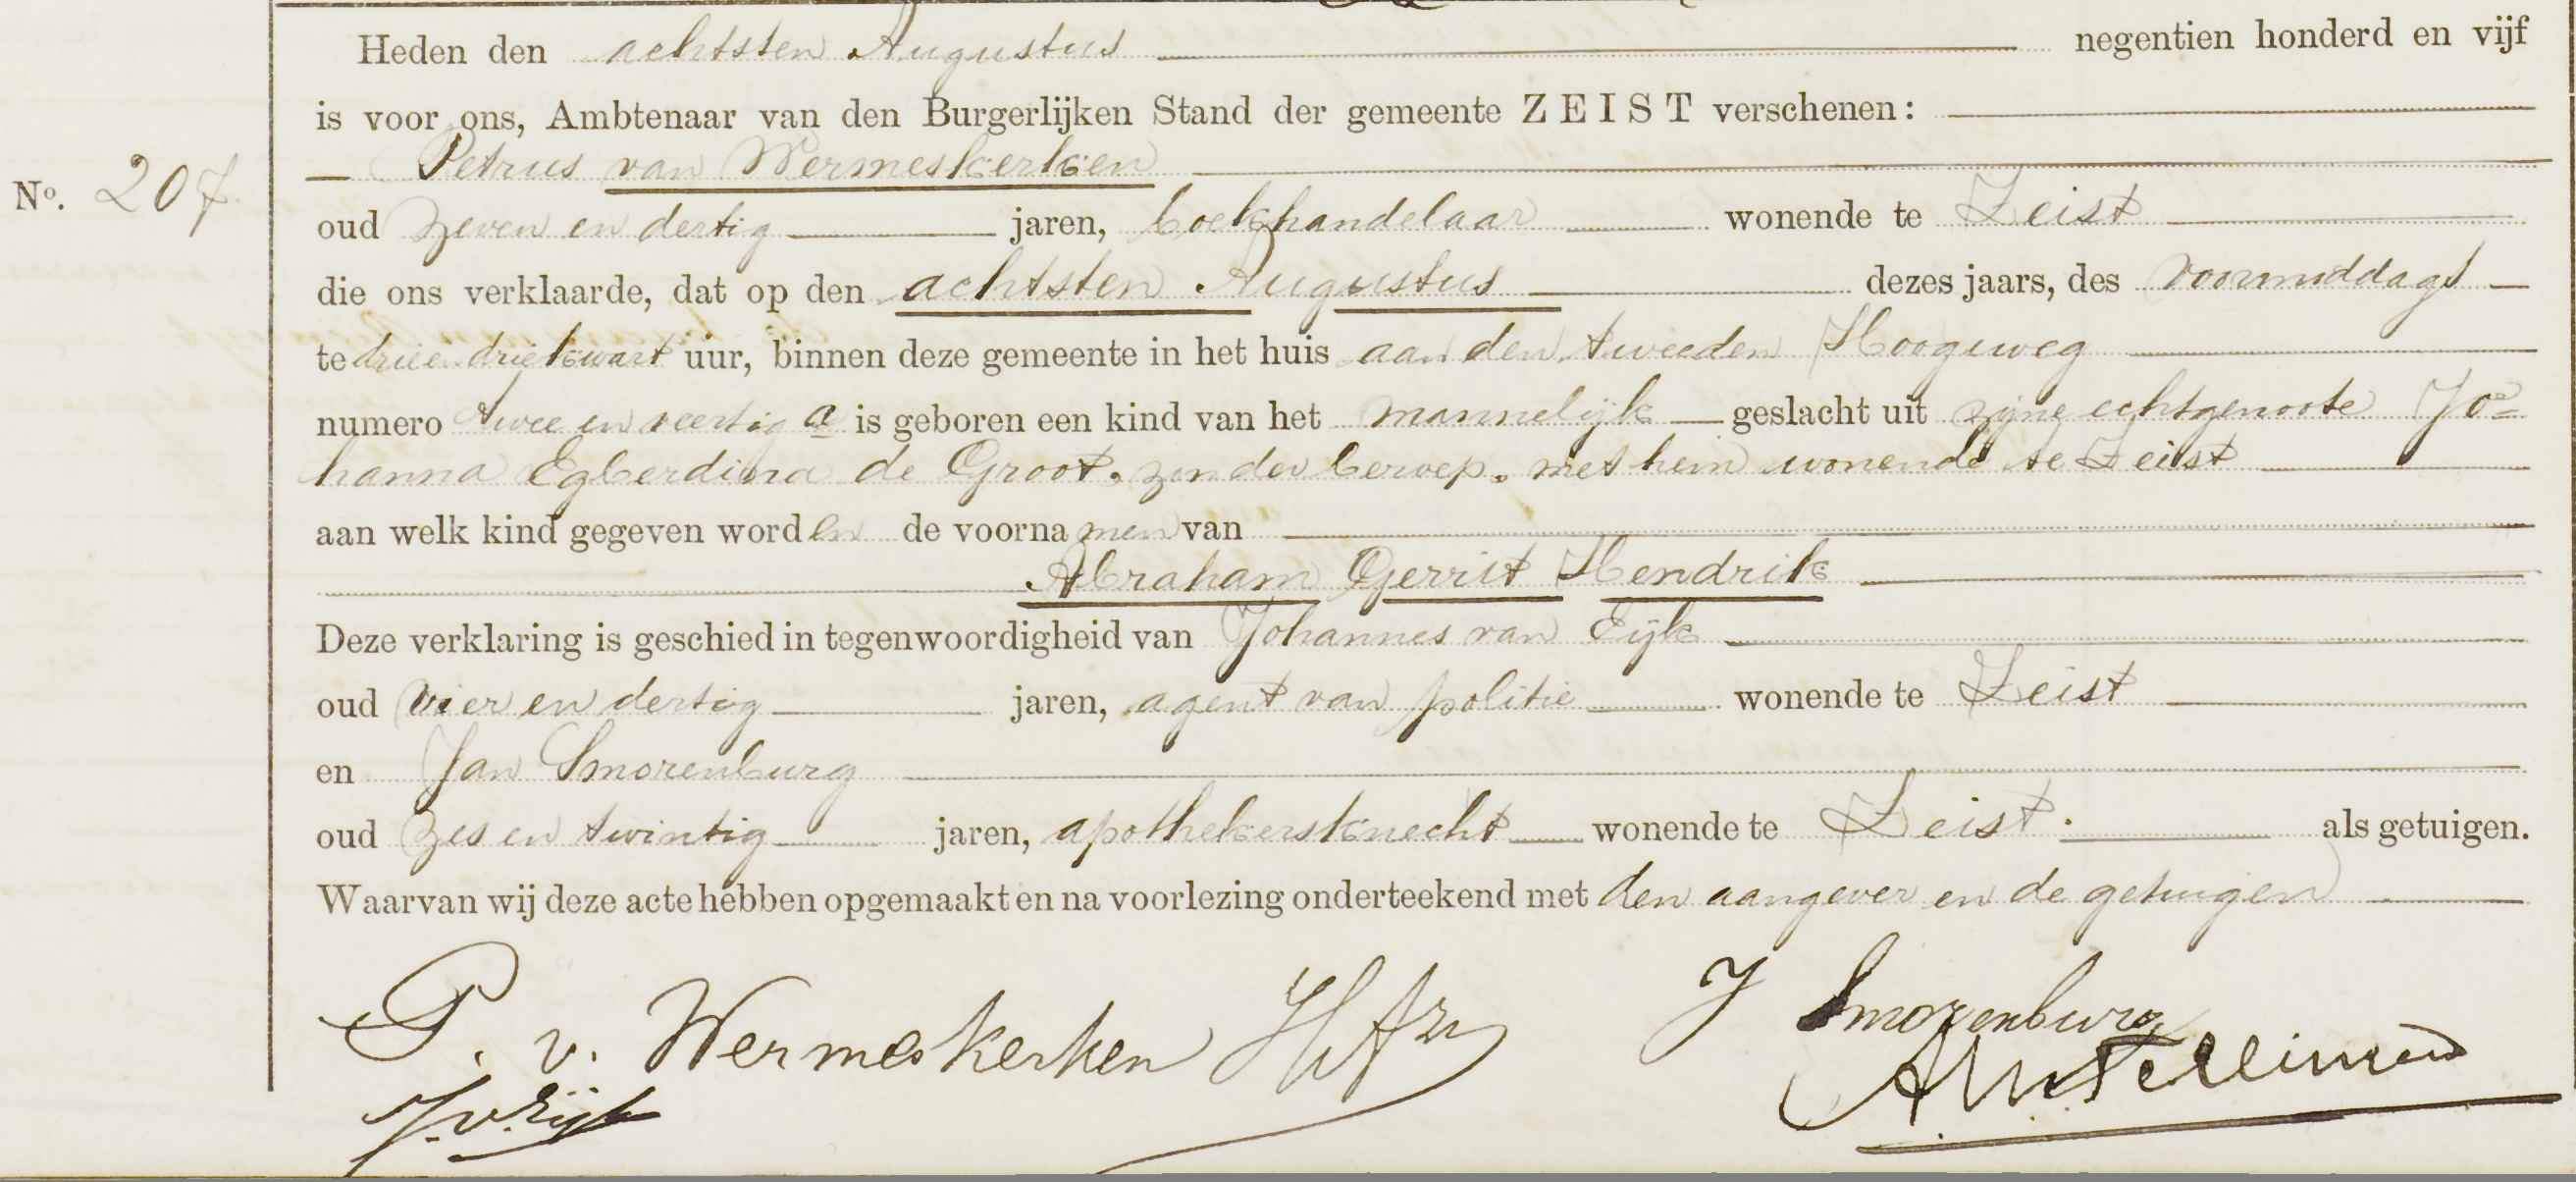 Heden den achtsten Augustus negentien honderd en vijf
is voor ons, Ambtenaar van den Burgerlijken Stand der gemeente ZEIST verschenen:
Petrus van Wermeskerken
No. 207
oud zeven en dertig jaren, boekhandelaar wonende te Zeist
die ons verklaarde, dat op den achtsten Augustus dezes jaars, des voormiddags
te drie en driekwart uur, binnen deze gemeente in het huis aan den tweeden Hoogeweg
numero twee en veertig a is geboren een kind van het mannelijk geslacht uit zijne echtgenoote Jo=
hanna Egberdina de Groot, zonder beroep, met hem wonende te Zeist
aan welk kind gegeven worden de voornamen van
Abraham Gerrit Hendrik
Deze verklaring is geschied in tegenwoordigheid van Johannes van Eijk
oud vier en dertig jaren, agent van politie wonende te Zeist
en Jan Smorenburg
oud zes en twintig jaren, apothekersknecht wonende te Zeist. als getuigen.
Waarvan wij deze acte hebben opgemaakt en na voorlezing onderteekend met den aangever en de getuigen
P. v. Wermeskerken J Smorenburg
J. v. Eijk